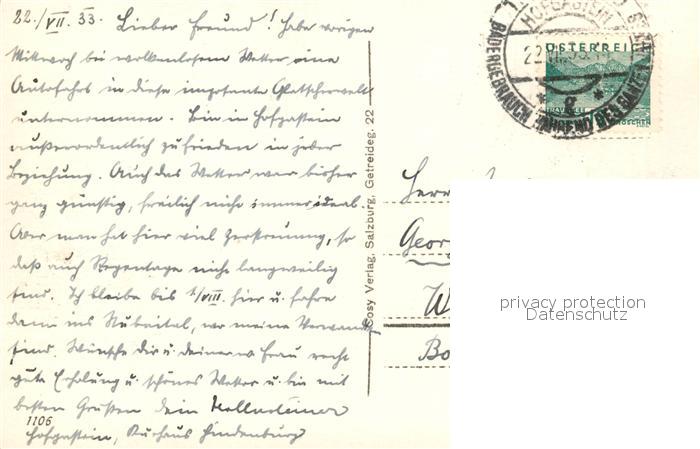 22./VII. 33. Lieber Freund! Habe vorigen
Mittwoch bei wolkenlosem Wetter eine
Autofahrt in diese imposante Gletscherwelt
unternommen. Bin in Hofgastein
außerordentlich zufrieden in jeder
Beziehung. Auch das Wetter war bisher
ganz günstig, freilich nicht immer ideal.
Aber man hat hier viel Zerstreuung, so
daß auch Regentage nicht langweilig
sind. Ich bleibe bis 2/VIII. hier u. fahre
dann ins Stubaital, wo meine Verwandt.
sind. Wünsche dir u. deiner w. Frau recht
gute Erholung u. schönes Wetter u. bin mit
besten Grüßen dein
1106
Hofgastein, Kurhaus Hindenburg
Cosy Verlag, Salzburg, Getreideg. 22
HOFGASTEIN
22.VII.33
BADERGEBRAUCH
ÖSTERREICH
Herrn
Georg
W
Bo
privacy protection
Datenschutz